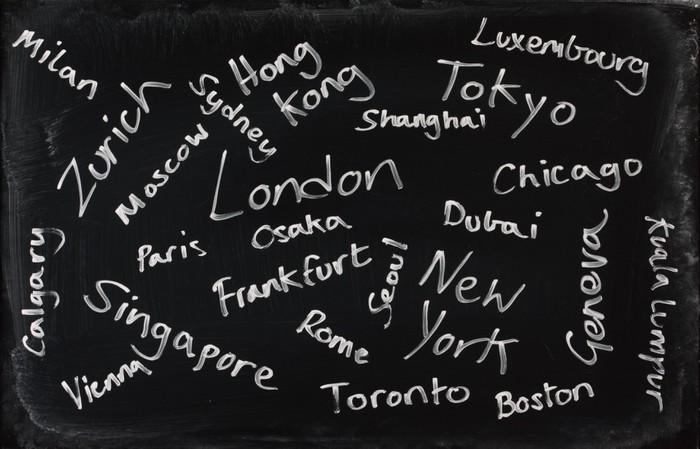 Milan
Zurich
Sydney
Hong
Kong
Luxembourg
Tokyo
Shanghai
Moscow
London
Chicago
Osaka
Dubai
Paris
Calgary
Frankfurt
Seoul
New
York
Geneva
Kuala Lumpur
Singapore
Rome
Vienna
Toronto
Boston